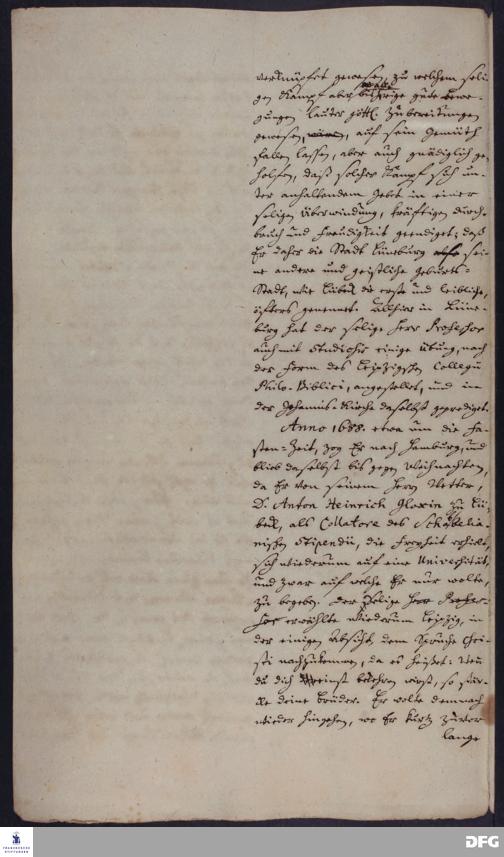 verknüpfet gewesen, zu welchem seli-
gen Kampf aber vorherige gute Bewe-
gungen lauter göttl. Zubereitungen
gewesen, auf sein Gemüth
fallen lassen, aber auch gnädiglich ge-
holfen, daß solcher Kampf sich un-
ter anhaltendem Gebet in einer
seligen Überwindung, kräftigen Durch-
bruch und Freudigkeit geendiget; daß
Er daher die Stadt Lüneburg sei-
ne andere und geistliche Geburts-
Stadt, wie Lübeck die erste und leibliche,
öfters genennet. Allhier in Lüne-
burg hat der selige Herr Professor
auch mit Studiosis einige Übung, nach
der Form des Leipzigschen Collegii
Philo-Biblici, angestellet, und in
der Johannis-Kirche daselbst geprediget.
Anno 1688. etwa um die Fa-
sten-Zeit, zog Er nach Hamburg, und
blieb daselbst bis gegen Weihnachten,
da Er von seinem Herrn Vetter,
D. Anton Heinrich Gloxin zu Lü-
beck, als Collatore des Schabbeliani-
nischen Stipendii, die Freyheit erhielt,
sich wiederum auf eine Universität,
und zwar auf welche Er nur wolte,
zu begeben. Der Selige Herr Profes-
sor erwählte wiederum Leipzig, in
der einigen Absicht, dem Spruche Chri-
sti nachzukommen, da es heißet: Wenn
du dich dereinst bekehren wirst, so stär-
cke deine Brüder. Er wolte demnach
wieder hingehen, wo Er kurtz zuvor
lange
FRANCKESCHE
STIFTUNGEN
DFG